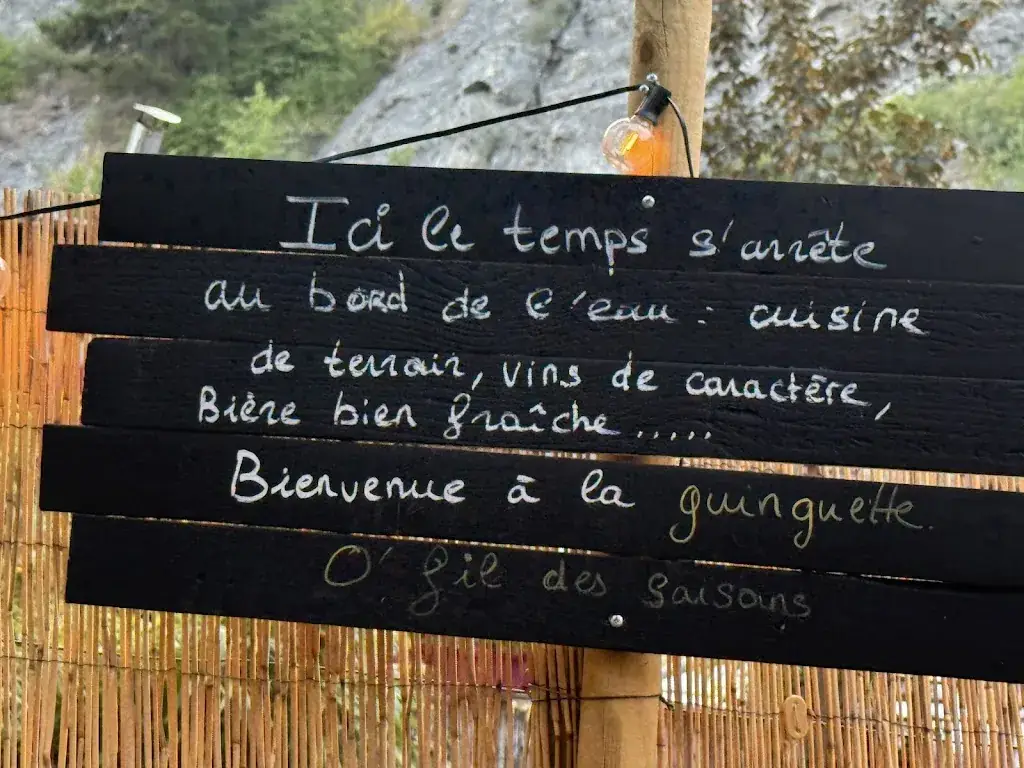 Ici le temps s'arrête
au bord de l'eau : cuisine
de terroir, vins de caractère,
Bière bien fraîche.....
Bienvenue à la guinguette.
O' fil des saisons